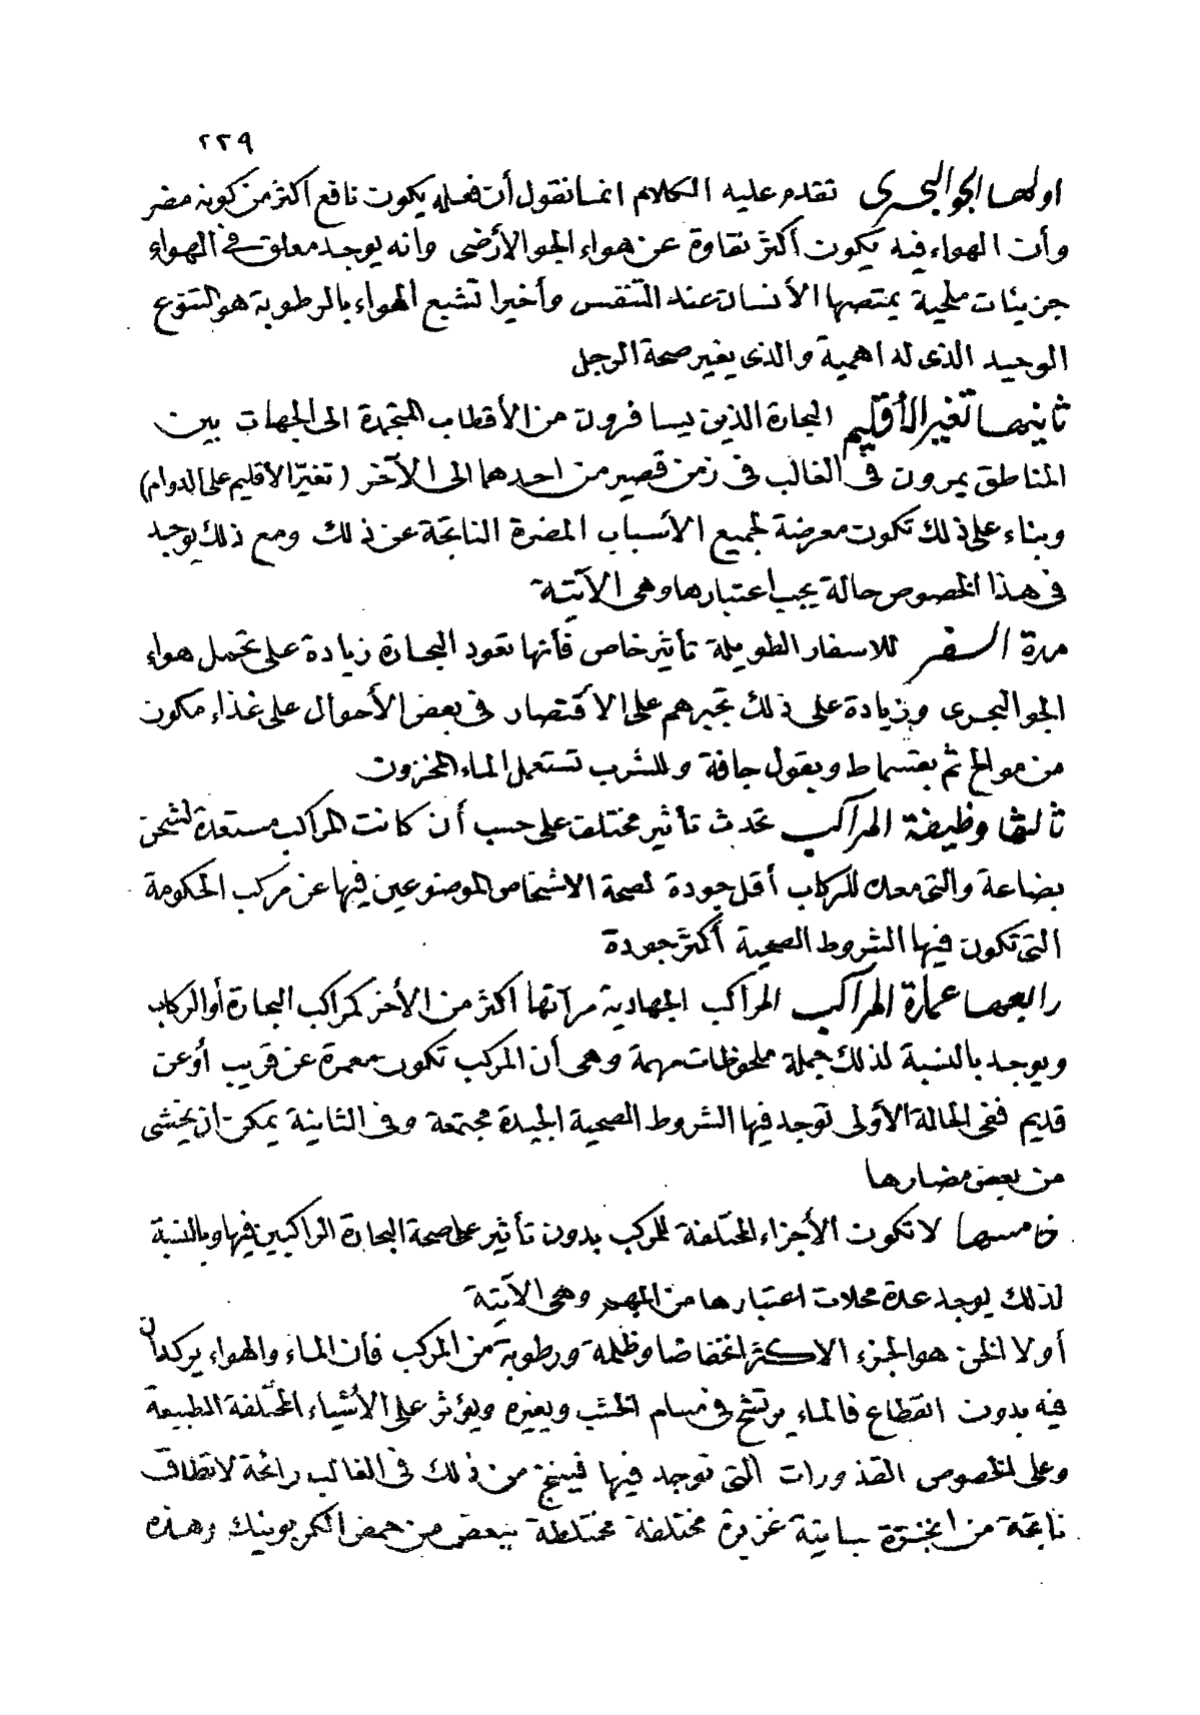 ٢٢٩
اولها الجو البحرى تقدم عليه الكلام انما نقول أن فعله يكون نافع أكثر من كونه مضر
وأن الهواء فيه يكون أكثر نقاوة عن هواء الجو الأرضى وانه يوجد معلق فى الهواء
جزيئات ملحية يمتصها الأنسان عند التنفس وأخيرا تشبع الهواء بالرطوبة هو التنوع
الوحيد الذى له اهمية والذى يغير صحة الرجل
ثانيها تغير الأقليم البحارة الذين يسافرون من الأقطاب المتجمدة الى الجهات بين
المناطق يمرون فى الغالب فى زمن قصير من احدهما الى الآخر (تغير الأقليم على الدوام)
وبناء على ذلك تكون معرضة لجميع الأسباب المضرة الناتجة عن ذلك ومع ذلك يوجد
فى هذا الخصوص حالة يجب اعتبارها وهى الآتية
مدة السفر للاسفار الطويلة تأثير خاص فأنها تعود البحارة زيادة على تحمل هواء
الجو البحرى وزيادة على ذلك تجبرهم على الأقتصار فى بعض الأحوال على غذاء مكون
من موالح ثم بقسماط وبقول جافة وللشرب تستعمل الماء المخزون
ثالثها وظيفة المراكب تحدث تأثير مختلف على حسب أن كانت المراكب مستعدة لشحن
بضاعة والتى معدة للركاب أقل جودة لصحة الاشخاص الموضوعين فيها عن مركب الحكومة
التى تكون فيها الشروط الصحية أكثر جودة
رابعها عمارة المراكب المراكب الجهادية مرآتها اكثر من الأخر كمراكب البحارة أو الركاب
ويوجد بالنسبة لذلك جملة ملحوظات مهمة وهى أن المركب تكون معمرة عن قريب أو عن
قديم ففى الحالة الأولى توجد فيها الشروط الصحية الجيدة مجتمعة وفى الثانية يمكن ان يخشى
من بعض مضارها
خامسها لا تكون الأجزاء المختلفة للمركب بدون تأثير على صحة البحارة الراكبين فيها وبالنسبة
لذلك يوجد عدة محلات اعتبارها من المهم وهى الآتية
أولا الخن هو الجزء الاكثر انخفاضا وظلمة ورطوبة من المركب فأن الماء والهواء يركدان
فيه بدون انقطاع فالماء يرتشح فى مسام الخشب ويغيره ويؤثر على الأشياء المختلفة الطبيعة
وعلى الخصوص القذورات التى توجد فيها فينتج من ذلك فى الغالب رائحة لا تطاق
ناتجة من ابخرة سامة غزيرة مختلفة مختلطة ببعض من حمض الكربونيك وهذه